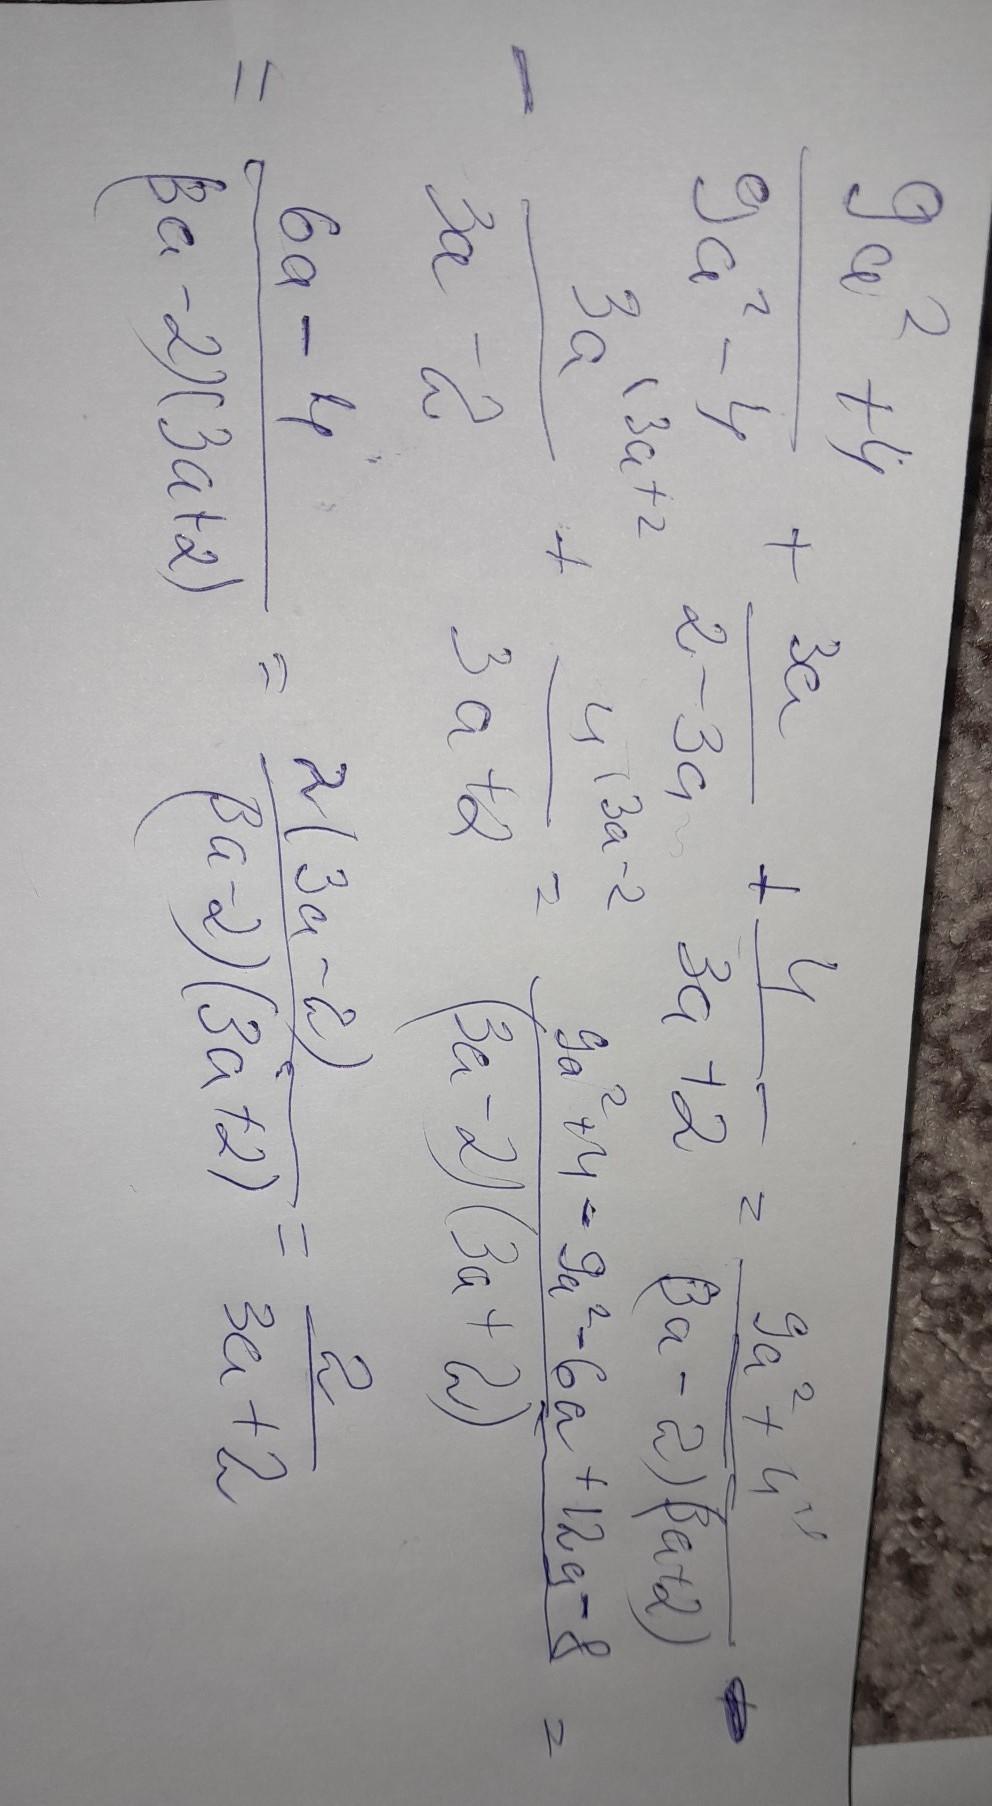 9a²+4 / 9a²-4 + 3a / 2-3a + 4 / 3a+2 = 9a²+4 / (3a-2)(3a+2) -
- 3a (3a+2 / 3a-2 + 4 (3a-2 / 3a+2 = 9a²+4-9a²-6a+12a-8 / (3a-2)(3a+2) =
= 6a-4 / (3a-2)(3a+2) = 2(3a-2) / (3a-2)(3a+2) = 2 / 3a+2